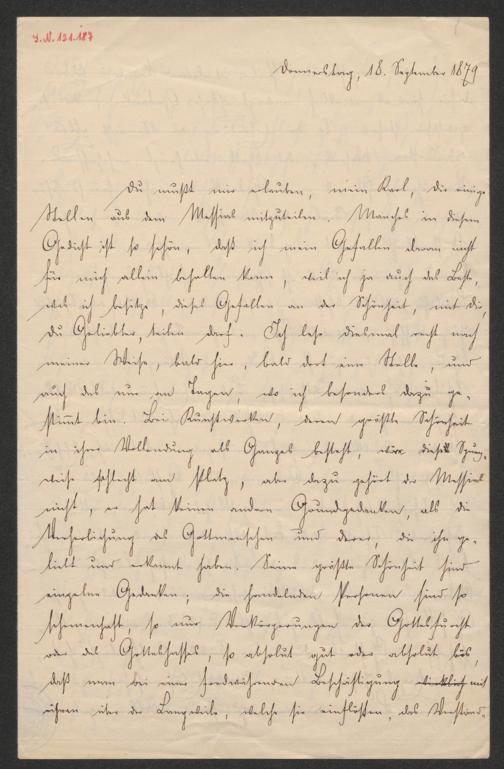 J.N. 121.187
Donnerstag, 18. September 1879
Du mußt mir erlauben, mein Karl, Dir einige
Stellen aus dem Messias mitzuteilen. Manches in diesem
Gedicht ist so schön, daß ich mein Gefallen daran nicht
für mich allein behalten kann, weil ich ja auch das Beste,
was ich besitze, dieses Gefallen an der Schönheit, mit Dir,
Du Geliebter, teilen darf. Ich lese diesmal recht nach
meiner Weise, bald hier, bald dort eine Stelle, und
auch das nur an Tagen, wo ich besonders dazu ge-
stimmt bin. Bei Kunstwerken, deren größte Schönheit
in ihrer Vollendung als Ganzes besteht, wäre diese
weise schlecht am Platz, aber dazu gehört der Messias
nicht, er hat keinen andern Grundgedanken, als die
Verherrlichung des Gottmenschen und derer, die ihn ge-
liebt und erkannt haben. Seine größte Schönheit sind
einzelne Gedanken; die handelnden Personen sind so
schemenhaft, so nur Verkörperungen der Gottesfurcht
oder des Gotteshasses, so absolut gut oder absolut bös,
daß man bei einer fortwährenden Beschäftigung wirklich mit
ihnen über der Langweile, welche sie einflößen, das Verständ-